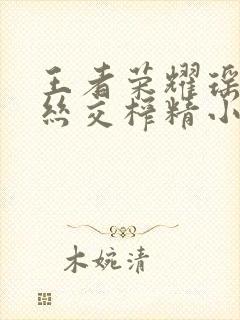 王者荣耀瑶
丝交榨精小
木婉清